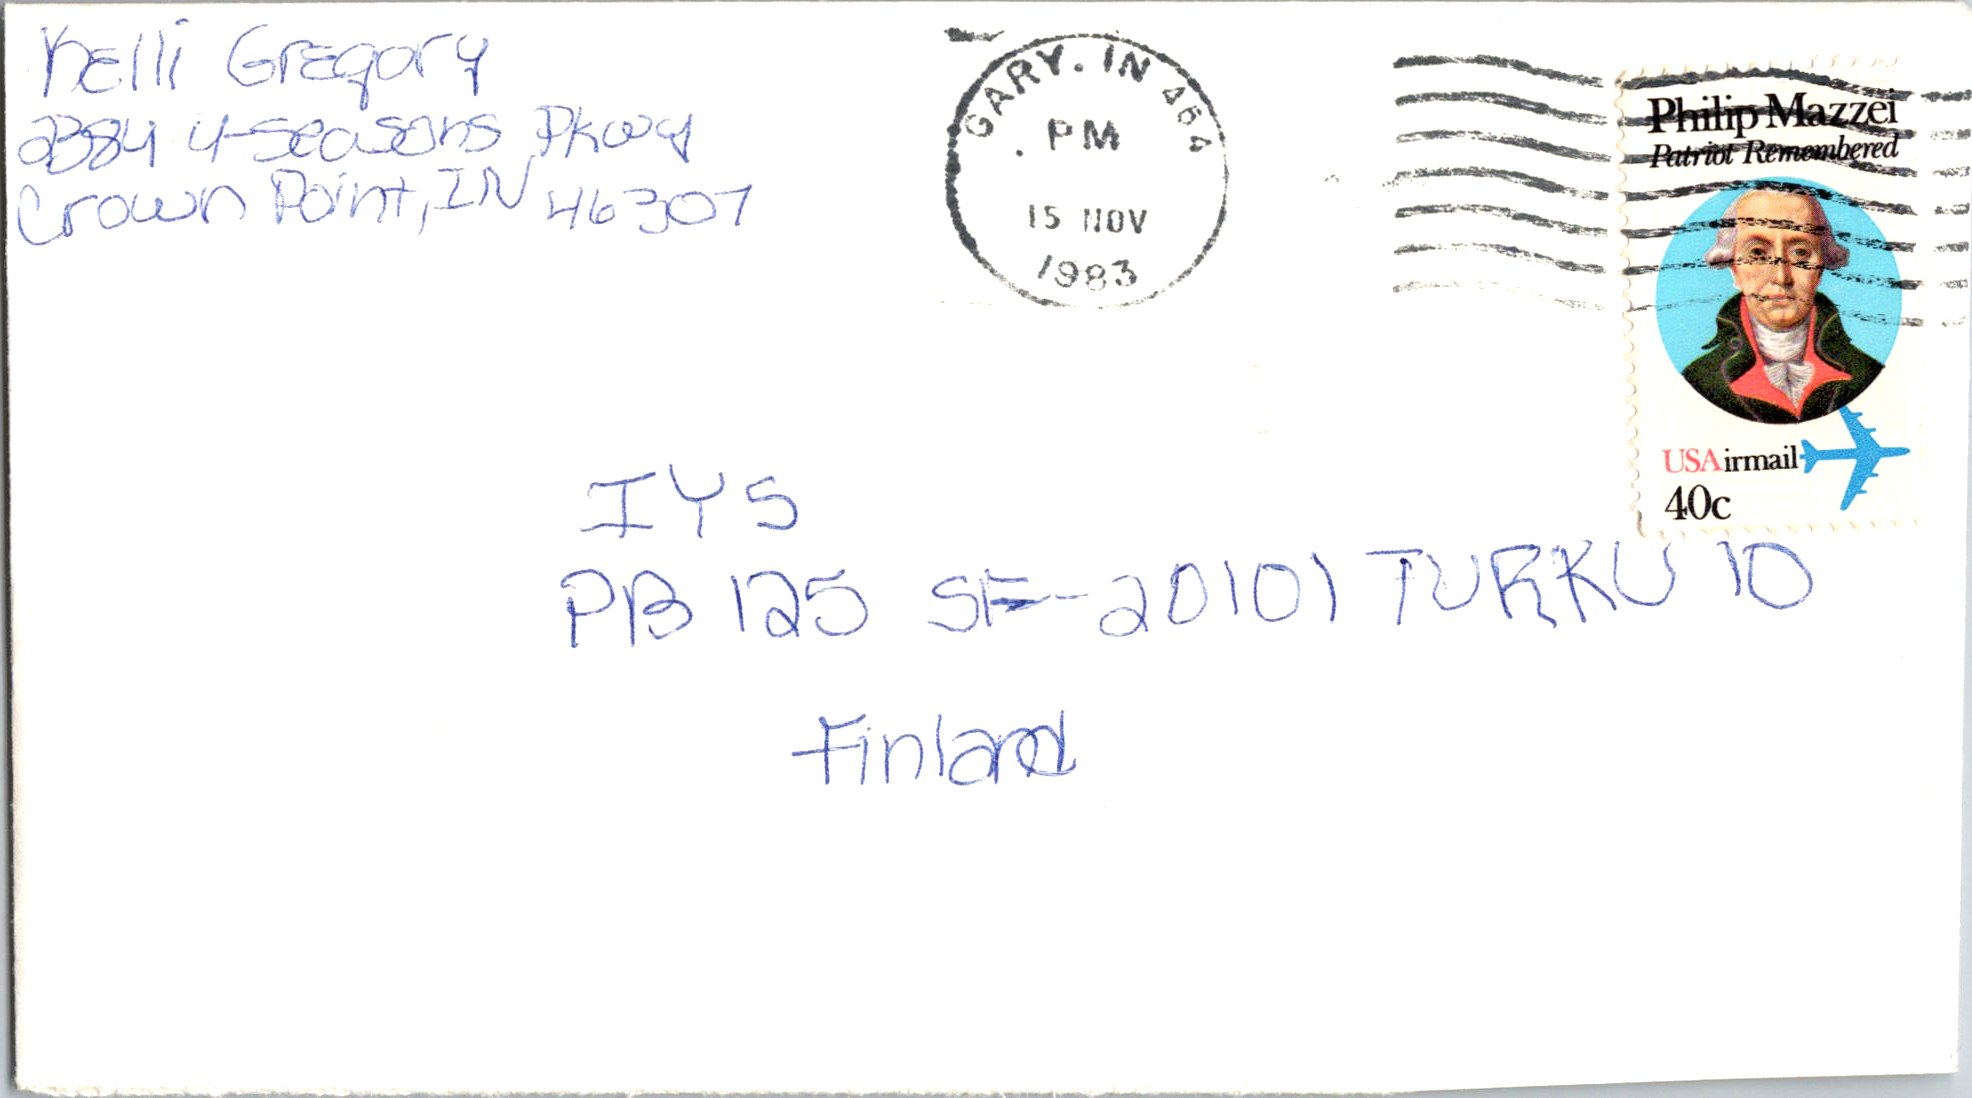 Kelli Gregory
2384 4-Seasons Pkwy
Crown Point, IN 46307
GARY, IN 464
PM
15 NOV
1983
Philip Mazzei
Patriot Remembered
USAirmail
40c
IYS
PB 125 SF-20101 TURKU 10
Finland